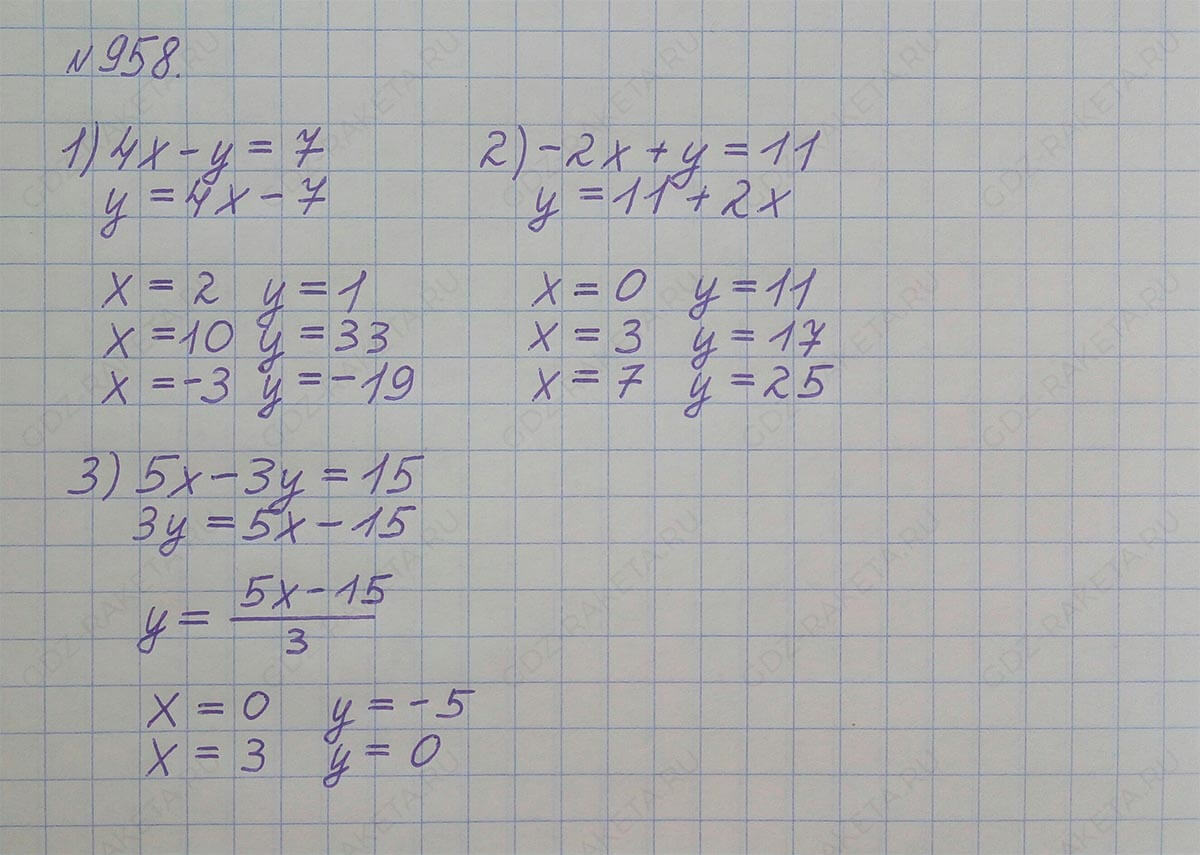 №958.
1) 4x - y = 7
y = 4x - 7
x = 2 y = 1
x = 10 y = 33
x = -3 y = -19
2) -2x + y = 11
y = 11 + 2x
x = 0 y = 11
x = 3 y = 17
x = 7 y = 25
3) 5x - 3y = 15
3y = 5x - 15
y = (5x - 15)/3
x = 0 y = -5
x = 3 y = 0
GDZ-RAKETA.RU